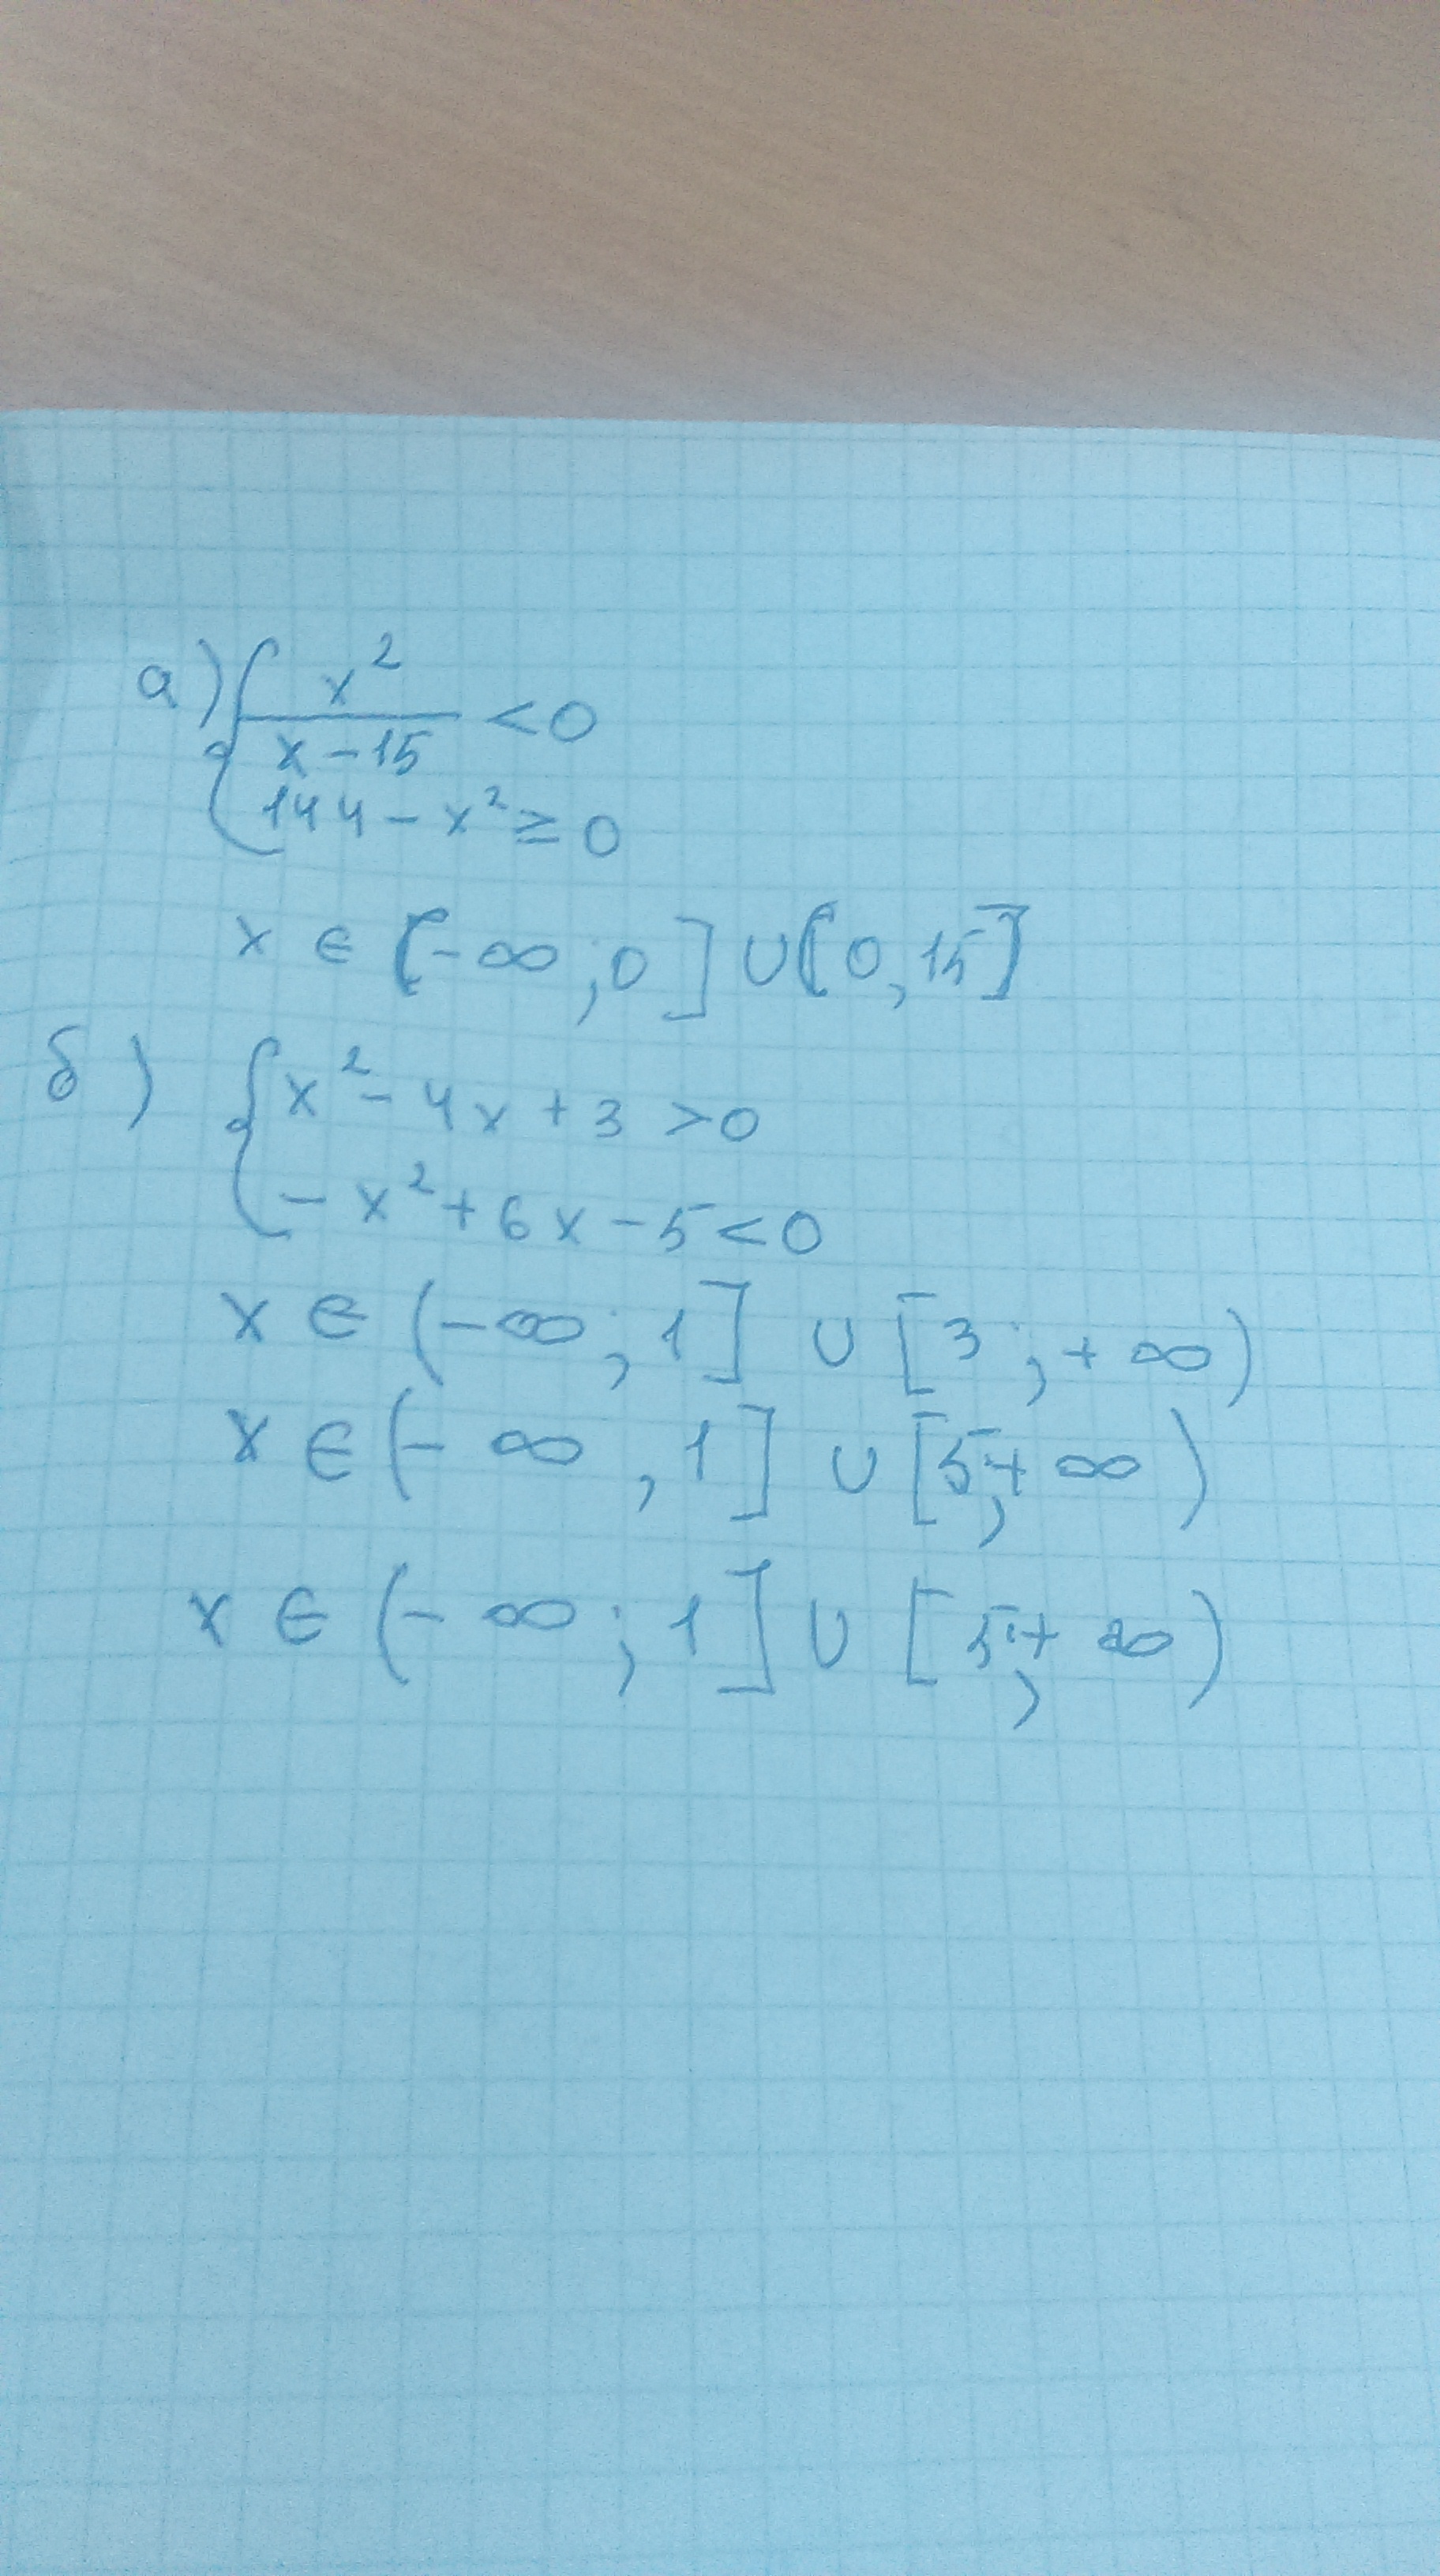 а) { x² / (x - 15) < 0
144 - x² ≥ 0
x ∈ [-∞; 0] ∪ [0, 15]
б) { x² - 4x + 3 > 0
- x² + 6x - 5 < 0
x ∈ (-∞; 1] ∪ [3; +∞)
x ∈ (-∞, 1] ∪ [5; +∞)
x ∈ (-∞; 1] ∪ [5; +∞)